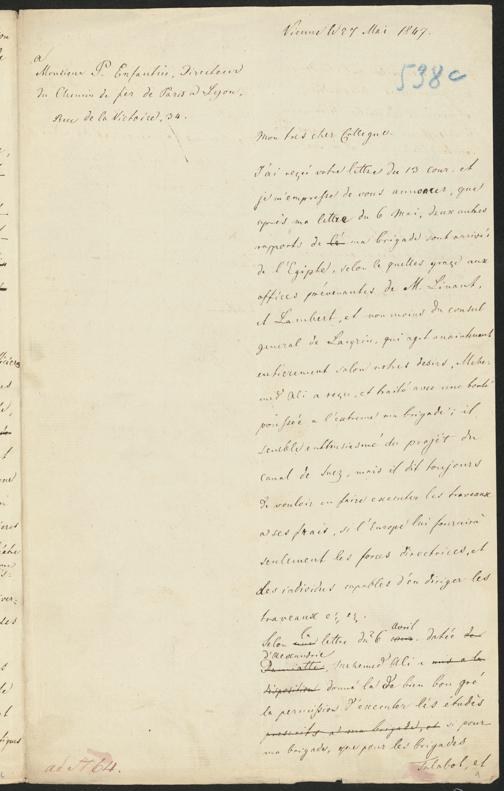 Vienne le 27 Mai 1847.
538c
a
Monsieur P. Enfantin, Directeur
du Chemin de fer de Paris a Lyon,
Rue de la Victoire, 34.
Mon tres cher Collegue.
J'ai reçu votre lettre du 13 cour. et
je m'empresse de vous annoncer, que
après ma lettre du 6 Mai, deux autres
rapports de ma brigade sont arrivés
de l'Egipte, selon le quelles graçe aux
offices prévenantes de M. Linant,
et Lambert, et non moins du consul
general de Laurin, qui agit maintenant
entierement salon notres desirs, Mehe-
med Ali a reçu, et traité avec une bonté
poussée a l'extreme ma brigade; il
semble enthousiasmé du projét du
canal de Suez, mais il dit toujours
de vouloir en faire executer les travaux
a ses frais, si l'Europe lui fournirà
seulement les forces directrices, et
des individus capables d'en diriger les
traveaux
Selon la lettre du 6 avril datée
d'Alexandrie Mehemed Ali a
donné la de bien bon gré
la permission d'executer les études
prescrits a ma brigade, et si pour
ma brigade, que pour les brigades
Talabot, et
ad N 64.